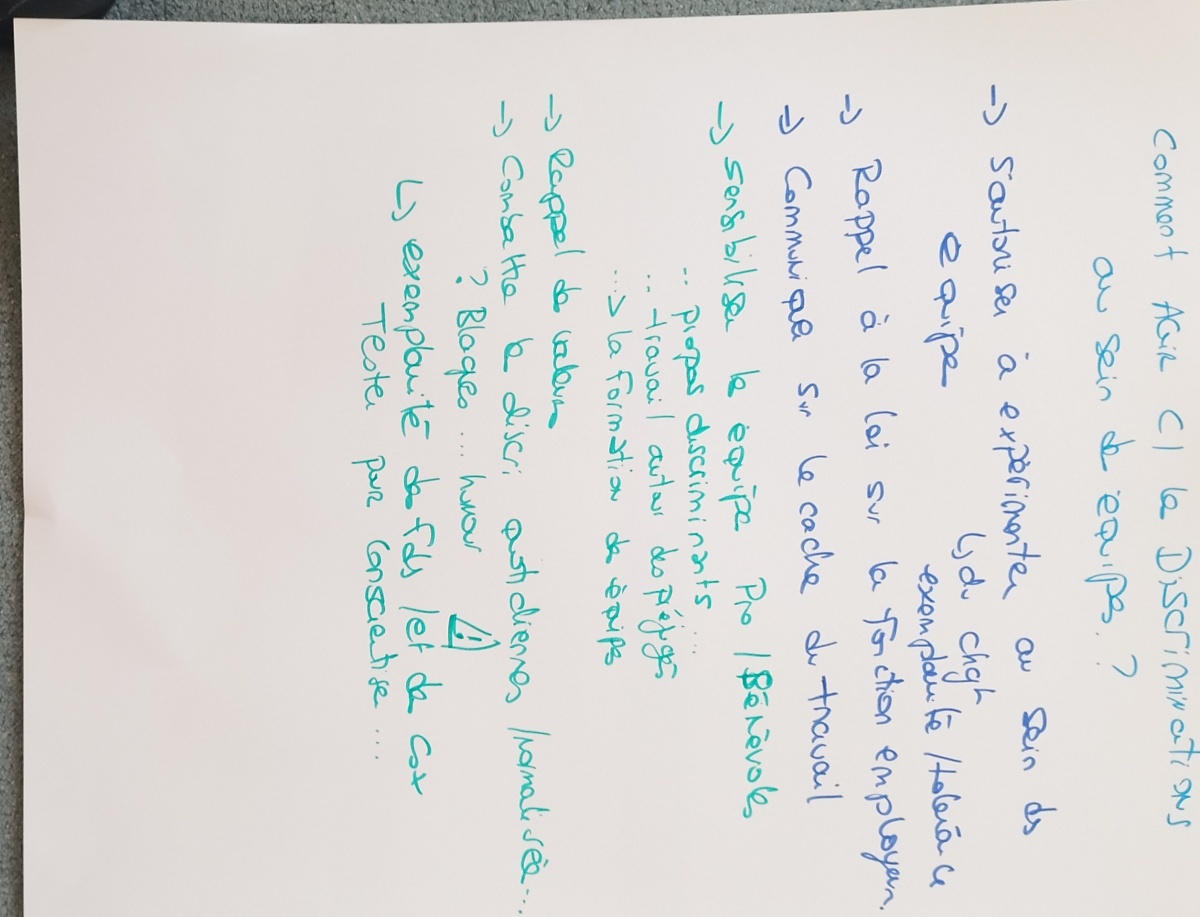 Comment Agir C/ les Discriminations
au sein des équipes ?
→ S'autoriser à expérimenter au sein des
équipe
↳ du chgt
exemplarité / tolérance
→ Rappel à la loi sur la fonction employeur.
→ Communiquer sur le cadre du travail
→ Sensibiliser les équipe Pro / Bénévoles
... propos discriminants ...
... travail autour des préjugés
...> la formation des équipes
→ Rappel des valeurs
→ Combattre les discri quotidiennes / normalisées ....
? Blagues ... humour ⚠
↳ exemplarité des fds / et des
Tester pour conscientiser ....